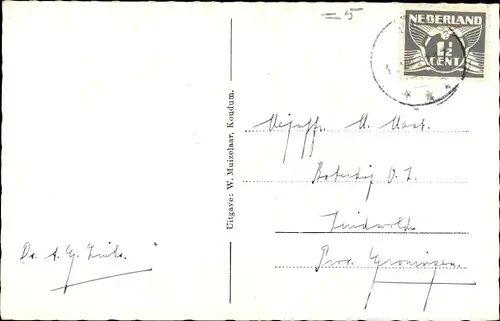 = 5
NEDERLAND
1½
CENT
Uitgave: W. Muizelaar, Koudum.
Mejuffr. M. Mast.
Boterdijk
Zuidwolde
Prov. Groningen.
Ds. A. G.